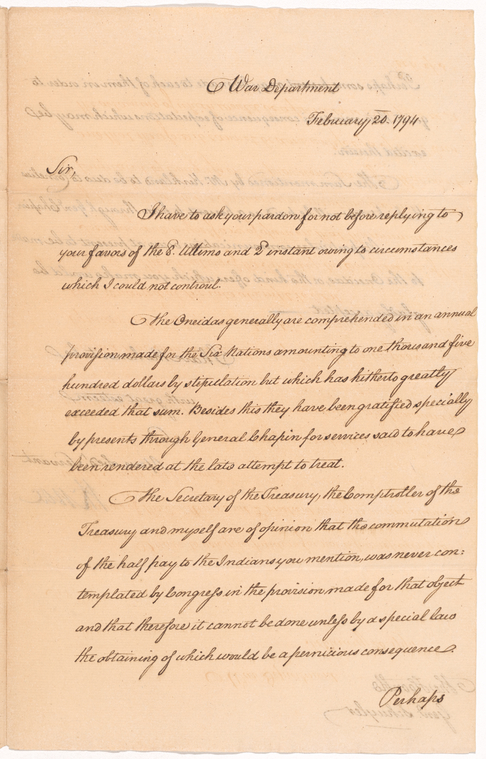 War Department
February 20. 1794
Sir,
I have to ask your pardon for not before replying to
your favors of the 8. ultimo and 2d instant owing to circumstances
which I could not controul.
The Oneidas generally are comprehended in an annual
provision made for the Six Nations amounting to one thousand five
hundred dollars by stipulation but which has hitherto greatly
exceeded that sum. Besides this they have been gratified specially
by presents through General Chapin for services said to have
been rendered at the late attempt to treat.
The Secretary of the Treasury, the Comptroller of the
Treasury and myself are of opinion that the commutation
of the half pay to the Indians you mention, was never con:
templated by Congress in the provision made for that object
and that therefore it cannot be done unless by a special law
the obtaining of which would be a pernicious consequence.
Perhaps